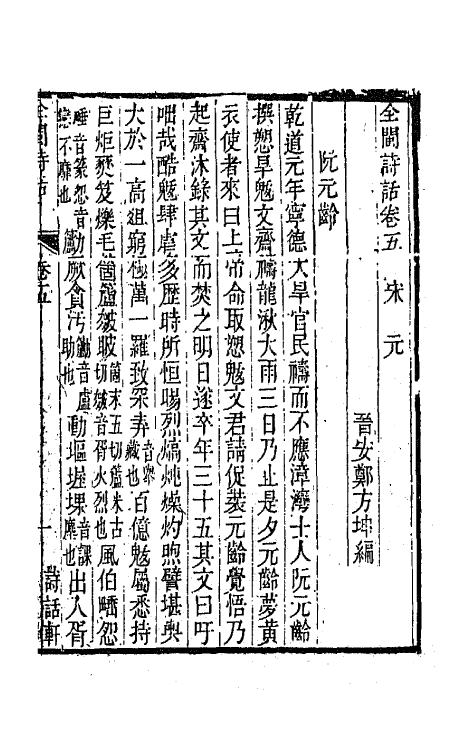 全閩詩話卷五　宋　元
晉安鄭方坤編
阮元齡
乾道元年寧德大旱官民禱而不應漳灣士人阮元齡
撰愬旱魃文齋禱龍湫大雨三日乃止是夕元齡夢黃
衣使者來曰上帝命取愬魃文君請促裝元齡覺悟乃
起齋沐錄其文而焚之明日遂卒年三十五其文曰吁
咄哉酷魃肆虐多歷時所恒暘烈熇炖燥灼煦譬堪輿
大於一高俎窮極萬一羅致罙弆音舉藏也百億魃屬悉持
巨炬焚笈爍毛 皴㿭 切皴音胥火烈也風伯皤怨
音篆怨音 不靡也 勷厥貪汚鋤音盧助也動堀堁音課塵也出入胥
全閩詩話　卷五　一　詩話軒